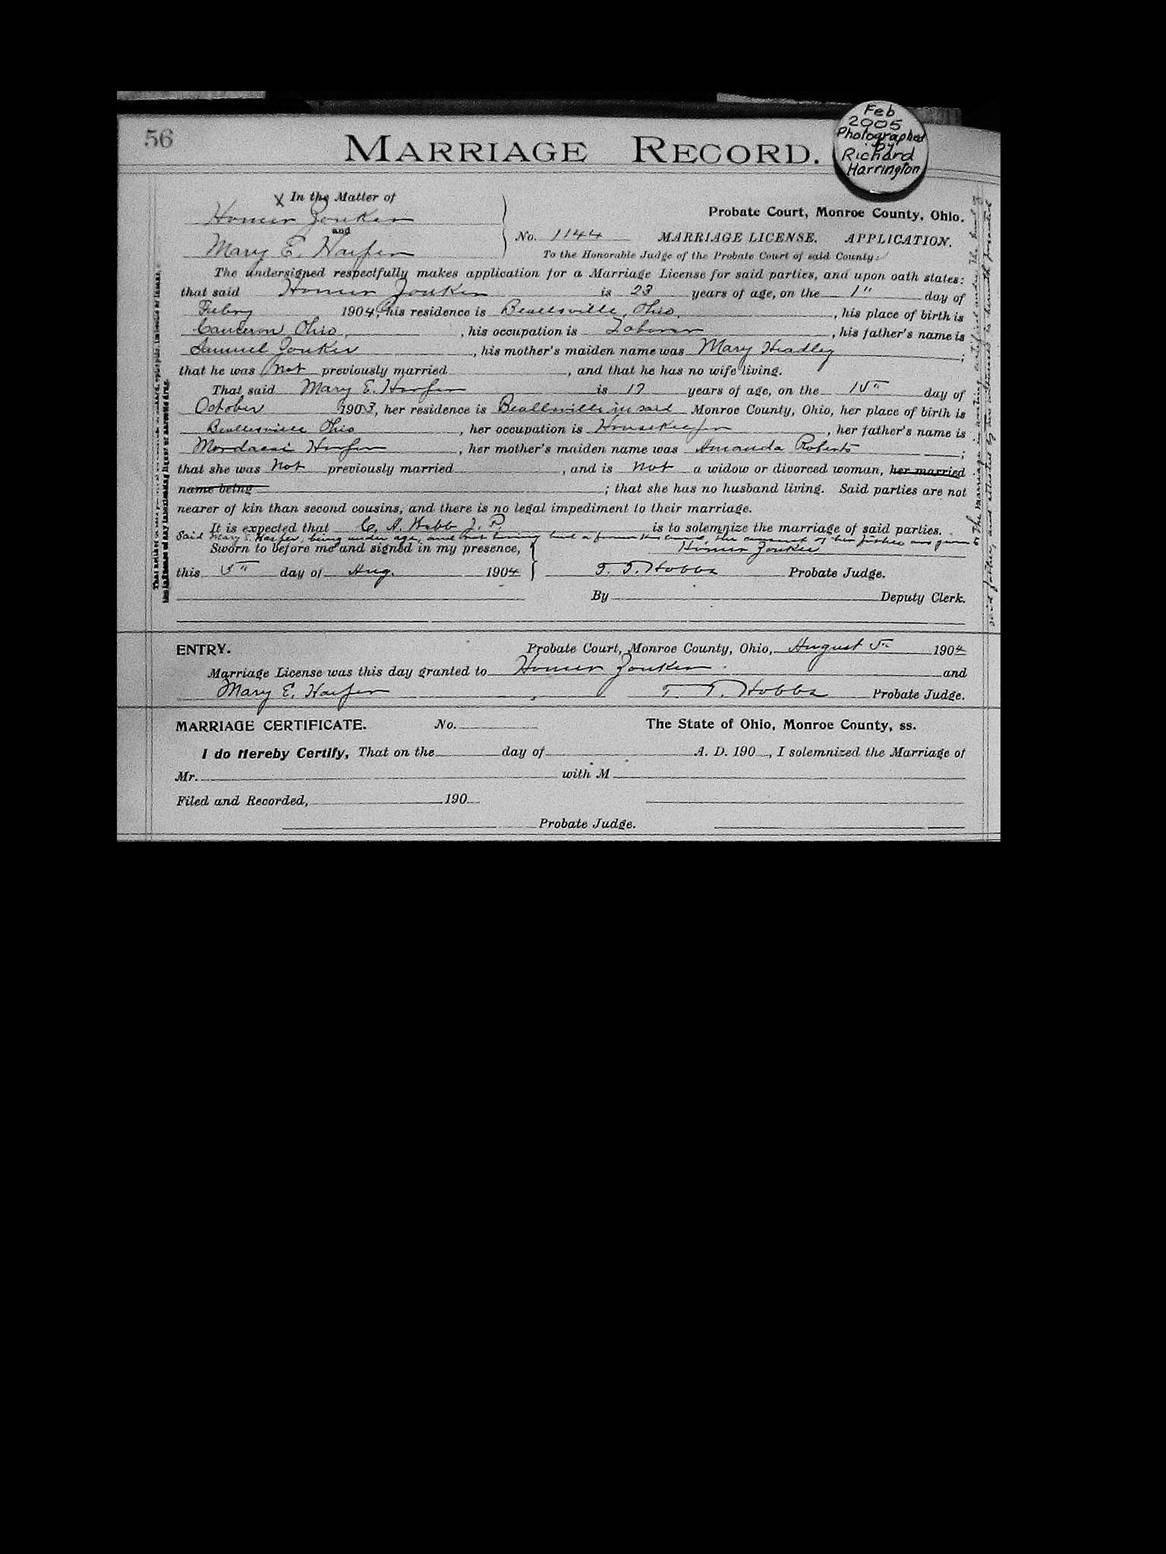 56
MARRIAGE RECORD.
Feb
2005
Photographed
by
Richard
Harrington
X In the Matter of
Homer Yonker
and
Mary E. Harper
No. 1144
Probate Court, Monroe County, Ohio.
MARRIAGE LICENSE. APPLICATION.
To the Honorable Judge of the Probate Court of said County:
The undersigned respectfully makes application for a Marriage License for said parties, and upon oath states:
that said Homer Yonker is 23 years of age, on the 1" day of
Febry 1904, his residence is Beallsville, Ohio, his place of birth is
Cameron, Ohio, his occupation is Laborer, his father's name is
Samuel Yonker, his mother's maiden name was Mary Headley;
that he was not previously married, and that he has no wife living.
That said Mary E. Harper is 17 years of age, on the 15" day of
October 1903, her residence is Beallsville in said Monroe County, Ohio, her place of birth is
Beallsville Ohio, her occupation is Housekeeper, her father's name is
Mordacai Harper, her mother's maiden name was Amanda Roberts;
that she was not previously married, and is not a widow or divorced woman, her married
name being; that she has no husband living. Said parties are not
nearer of kin than second cousins, and there is no legal impediment to their marriage.
It is expected that C. A. Hobb J. P. is to solemnize the marriage of said parties.
Said Mary E. Harper, being under age, and not having had a former the consent of her father was given
Sworn to before me and signed in my presence, Homer Yonker
this 5" day of Aug. 1904 T. T. Hobbs Probate Judge.
By Deputy Clerk.
ENTRY. Probate Court, Monroe County, Ohio, August 5" 1904
Marriage License was this day granted to Homer Yonker and
Mary E. Harper T. T. Hobbs Probate Judge.
MARRIAGE CERTIFICATE. No. The State of Ohio, Monroe County, ss.
I do Hereby Certify, That on the day of A. D. 190, I solemnized the Marriage of
Mr. with M
Filed and Recorded, 190
Probate Judge.